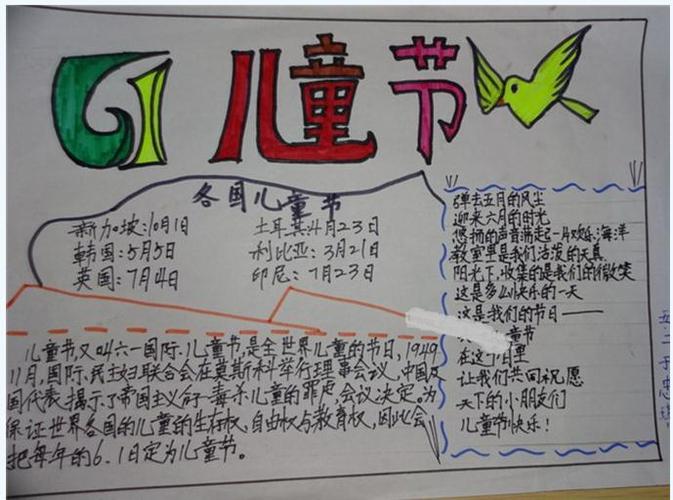 61 儿童节
各国儿童节
新加坡:10月1日
土耳其:4月23日
韩国:5月5日
利比亚:3月21日
英国:7月4日
印尼:7月23日
弹去五月的风尘
迎来六月的时光
悠扬的声音荡起一片欢乐海洋
教室里是我们活泼的天真
阳光下,收集的是我们的微笑
这是多么快乐的一天
这是我们的节日——
童节
在这个日里
让我们共同祝愿
天下的小朋友们
儿童节快乐!
儿童节,又叫六一国际儿童节,是全世界儿童的节日,1949
11月,国际民主妇联合会在莫斯科举行理事会议,中国及
国代表揭示了帝国主义毒杀儿童的罪,会议决定,为
保证世界各国的儿童的生存权,自由权与教育权,因此会
把每年的6.1日定为儿童节。